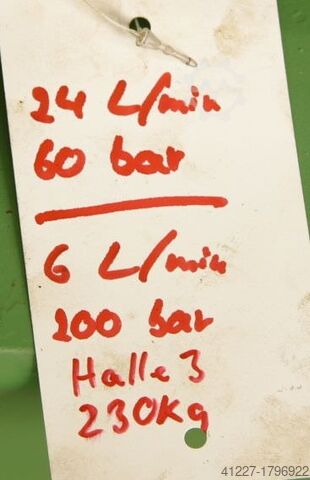 24 L/min
60 bar
6 L/min
200 bar
Halle 3
230Kg
41227-1796922